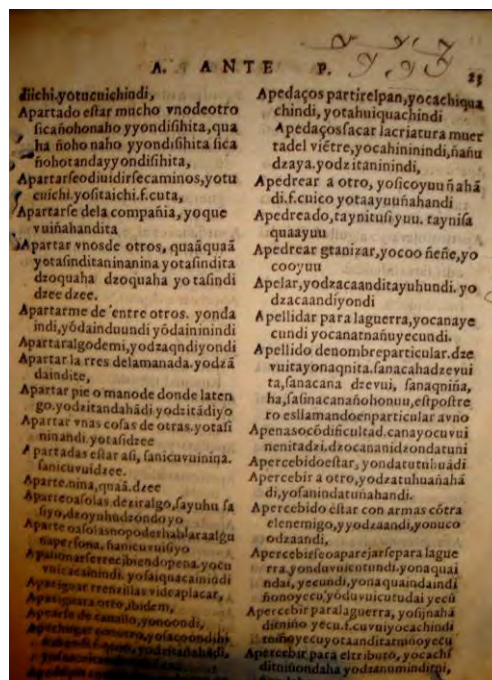 A. ANTE P.
23
diichi.yotucuichindi,
Apartado eſtar mucho vnodeotro
ſicañohonaho yyondiſihita,qua
ha ñoho naho yyondiſihita ſica
ñohotandayyondiſihita,
Apartarſeodiuidirſecaminos,yotu
cuichi.yoſitaichi.ſ.cuta,
Apartarſe dela compañia, yoque
vuiñahandita
Apartar vnosde otros, quaãquaã
yotaſinditaninanina yotaſindita
dzoquaha dzoquaha yo taſindi
dzee dzee.
Apartarme de entre otros. yonda
indi,yódainduundi yódaininindi
Apartaralgodemi,yodzaqndiyondi
Apartar la rres delamanada.yodzã
daindite,
Apartar pie o manode donde laten
go.yodzitandahãdi yodzitãdiyo
Apartar vnas coſas de otras.yotaſi
ninandi.yotaſidzee
Apartadas eſtar aſi, ſanicuvuinina.
ſanicuvuidzee.
Aparte.nina,quaã.dzee
Aparteoaſolas deziralgo,ſayuhu ſa
ſiyo,dzoyuhudzondo yo
Aparte oaſolasnopoderhablaraalgu
naperſona, ñanicuvuiſiyo
Apaſionarſerrecibiendopena.yocu
vuicacainindi. yoſaiquacainindi
Apaziguar rrenzillas videaplacar,
Apaziguara otro,ibidem,
Apearſe de cauallo,yonoondi,
Apedaços partirelpan,yocachiqua
chindi, yotahuiquachindi
Apedaçosſacar lacriatura muer
tadel viẽtre,yocahininindi,ñañu
dzaya.yodzitaninindi,
Apedrear a otro, yoſicoyuu ñahã
di.ſ.cuico yotaayuuñahandi
Apedreado,taynituſi yuu. tayniſa
quaayuu
Apedrear gtanizar,yocoo ñeñe,yo
cooyuu
Apelar,yodzacaanditayuhundi. yo
dzacaandiyondi
Apellidar para laguerra,yocanaye
cundi yocanatnañuyecundi.
Apellido denombreparticular.dze
vuitayonaqnita.ſanacahadzevui
ta,ſanacana dzevui, ſanaqniña,
ha,ſaſinacanañohonuu,eſtpoſtre
ro esllamandoenparticular avno
Apenasocódificultad.canayocuvui
nenitadzi.dzocananidzondatuni
Apercebidoeſtar, yondatutuhuãdi
Apercebir a otro,yodzatuhuañahã
di,yoſanindatuñahandi.
Apercebido eſtar con armas cótra
elenemigo,yyodzaandi,yonuco
odzaandi,
Apercebirſeoaparejarſepara lague
rra.yonduvuicutundi.yonaquai
ndai, yecundi,yonaquaindaindi
ñonoyecu,yóduvuicutudai yecũ
Apercebir paralaguerra, yoſijnahã
ditniño yecu.ſ.cuvuiyocachindi
tniñoyecuyotaanditatniñoyecu
Apercebir para eltributo, yocachi
ditniñondaha yodzanuminditni,